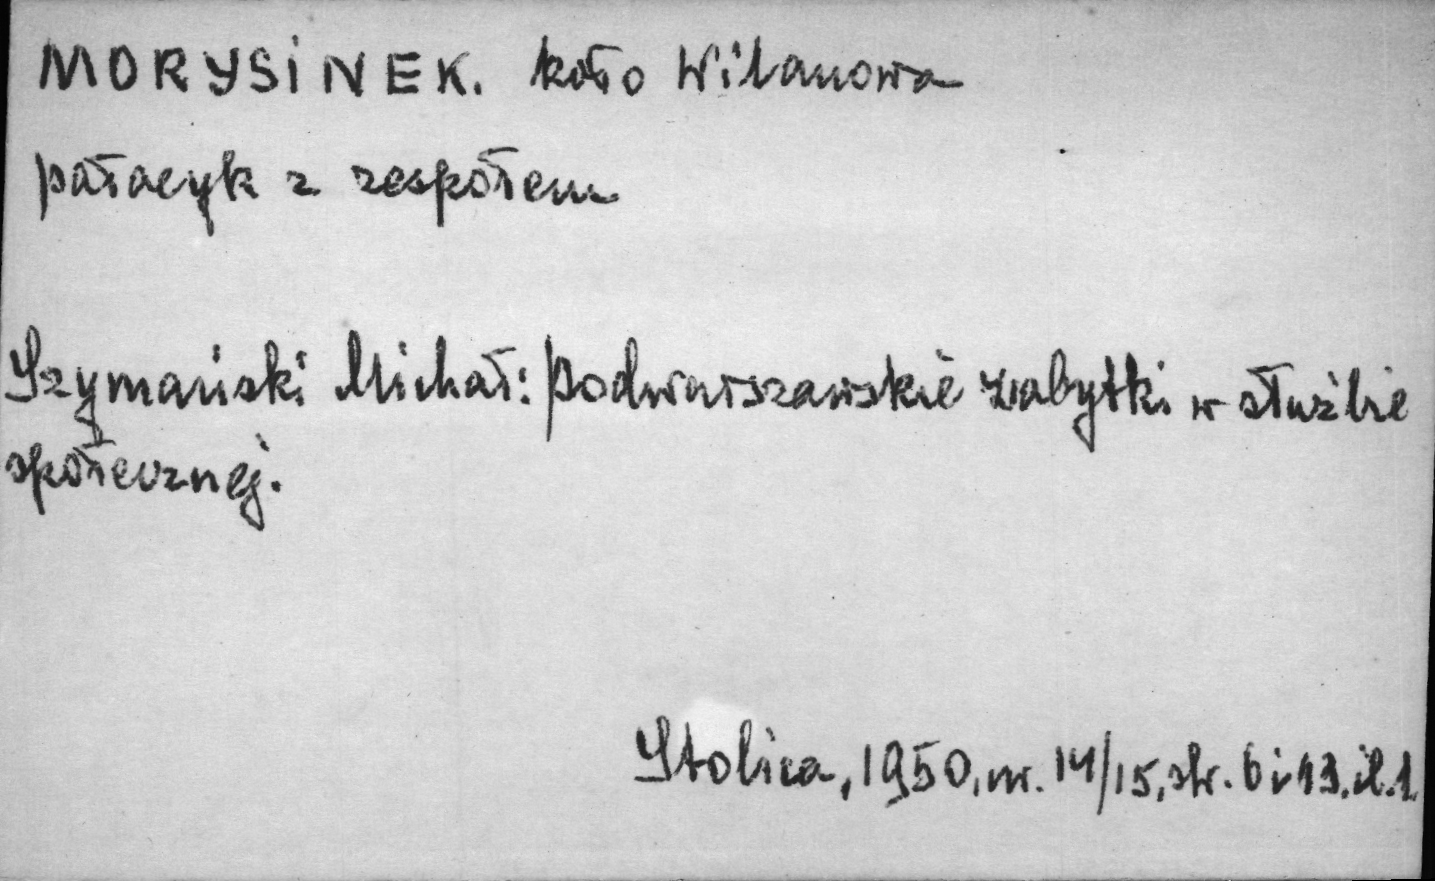 MORYSINEK. koło Wilanowa
pałacyk z zespołem
Szymański Michał: Podwarszawskie zabytki w służbie
społecznej.
Stolica, 1950, nr. 14/15, str. 6 i 13, il. 1.